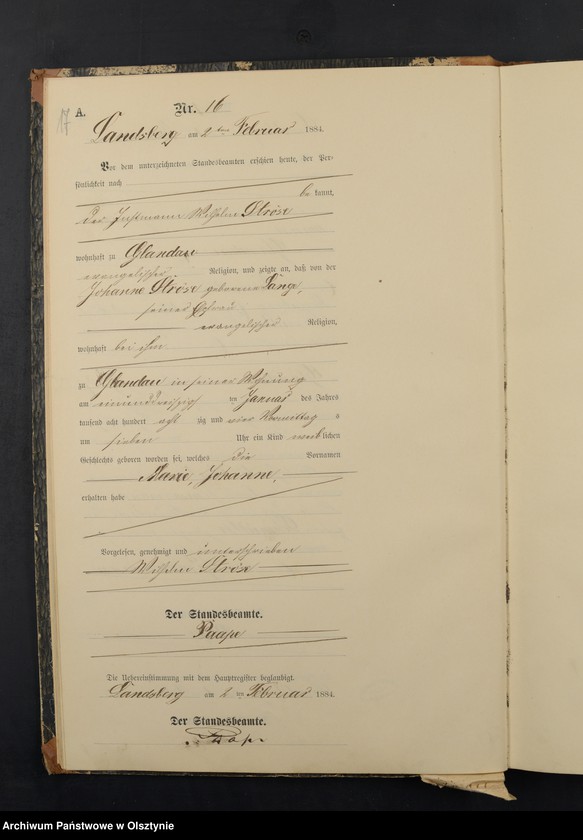 17
A.
Nr. 16
Landsberg am 2ten Februar 1884.
Vor dem unterzeichneten Standesbeamten erschien heute, der Per-
sönlichkeit nach
be kannt,
der Instmann Wilhelm Ströse
wohnhaft zu Glandau
evangelischer Religion, und zeigte an, daß von der
Johanne Ströse geborene Lange,
seiner Ehefrau
evangelischer Religion,
wohnhaft bei ihm
zu Glandau in seiner Wohnung
am einunddreissigsten Januar des Jahres
tausend acht hundert acht zig und vier Vormittag s
um sieben Uhr ein Kind weiblichen
Geschlechts geboren worden sei, welches die Vornamen
Marie, Johanne,
erhalten habe
Vorgelesen, genehmigt und unterschrieben
Wilhelm Ströse
Der Standesbeamte.
Paape
Die Uebereinstimmung mit dem Hauptregister beglaubigt.
Landsberg am 2 ten Februar 1884.
Der Standesbeamte.
Paape
Archiwum Państwowe w Olsztynie